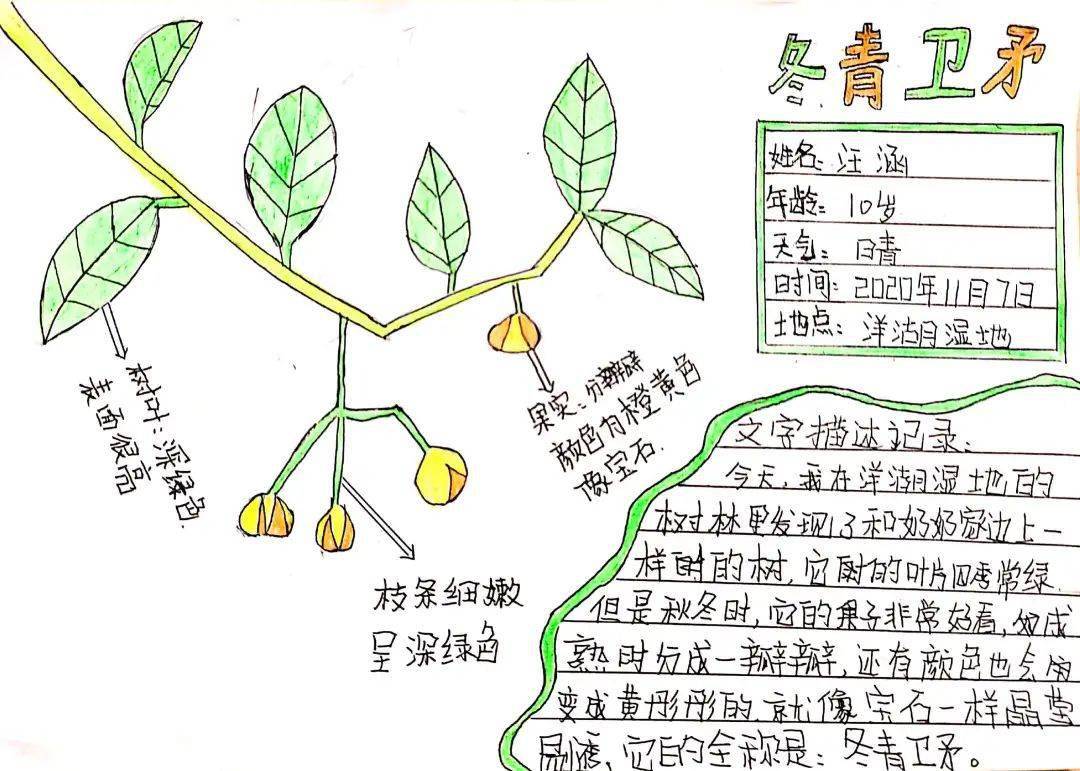 冬青卫矛
姓名：汪涵
年龄：10岁
天气：日青
日时间：2020年11月7日
土地点：洋湖湿地
树叶：深绿色.
表面很高
果实：分瓣瓣
颜色为橙黄色
像宝石.
枝条细嫩
呈深绿色
文字描述记录：
今天，我在洋湖湿地的
树林里发现了和奶奶家边上一
样的树，它的叶片四季常绿.
但是秋冬时，它的果子非常好看，如成
熟时分成一瓣瓣，还有颜色也会
变成黄彤彤的，就像宝石一样晶莹
剔透，它的全称是：冬青卫矛。